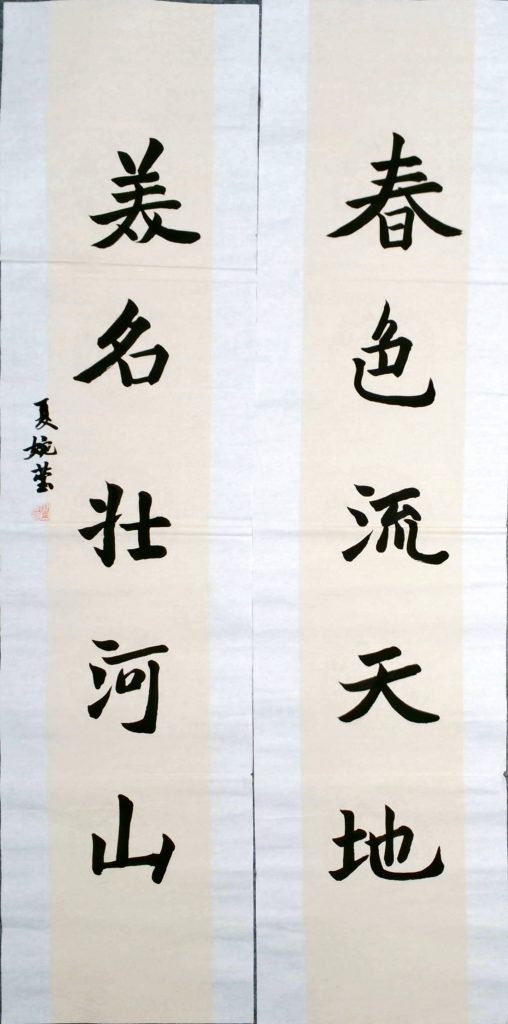 春色流天地
美名壮河山
夏婉莹